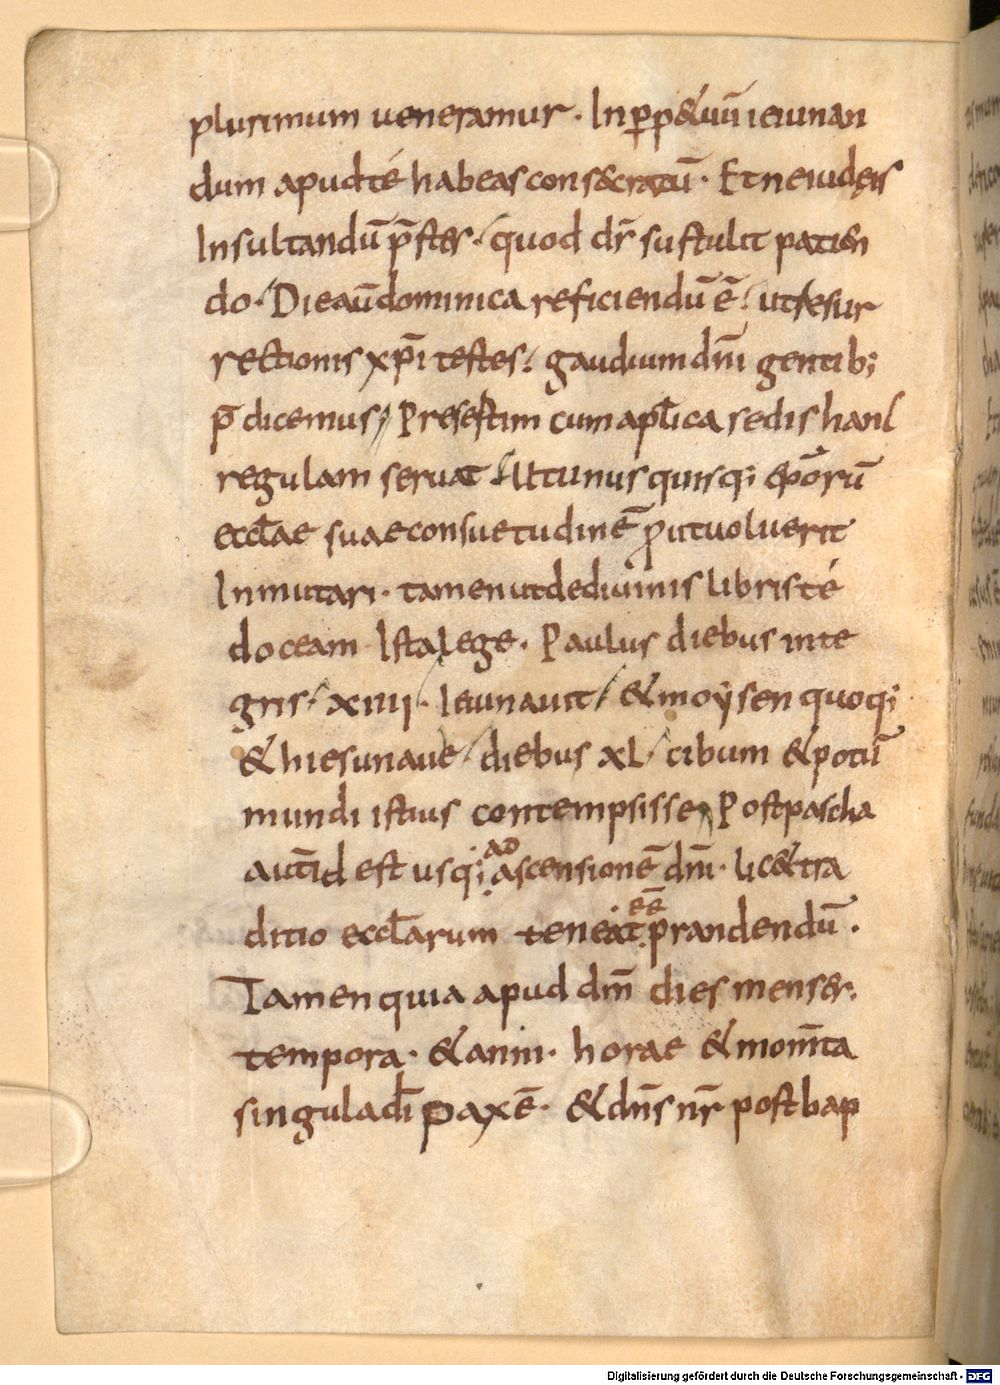 plurimum ueneramur · In ꝑp&uū ieiunan
dum apud té habeas consecratū · Et ne iudęis
Insultandū p̄ster · quod dr̄ sustulit patien
do · Die aū dominica reficiendū ē · ut resur
rectionis xp̄i testes · gaudium dn̄i gentib;
p̄dicemus Presertim cum apl̄ica sedis hanc
regulam seruat Ut unusquisq; ep̄orū
eccl̄ae suae consuetudinē ꝓut uoluerit
Inmutari · tamen ut de diuinis libris té
doceam Ista lege · Paulus diebus inte
gris · xiiii · Ieiunauit & moÿsen quoq;
& hiesu naue diebus xl · cibum & potū
mundi istius contempsisse Post pascha
aut̄ id est usq; ad ascensionē dn̄i · lic& tra
ditio eccl̄arum teneat eē prandendū ·
Tamen quia apud dm̄ dies menses ·
tempora · & anni · horae & mom̄ta
singula di paxē · & dn̄s nr̄ post bap
Digitalisierung gefördert durch die Deutsche Forschungsgemeinschaft - DFG